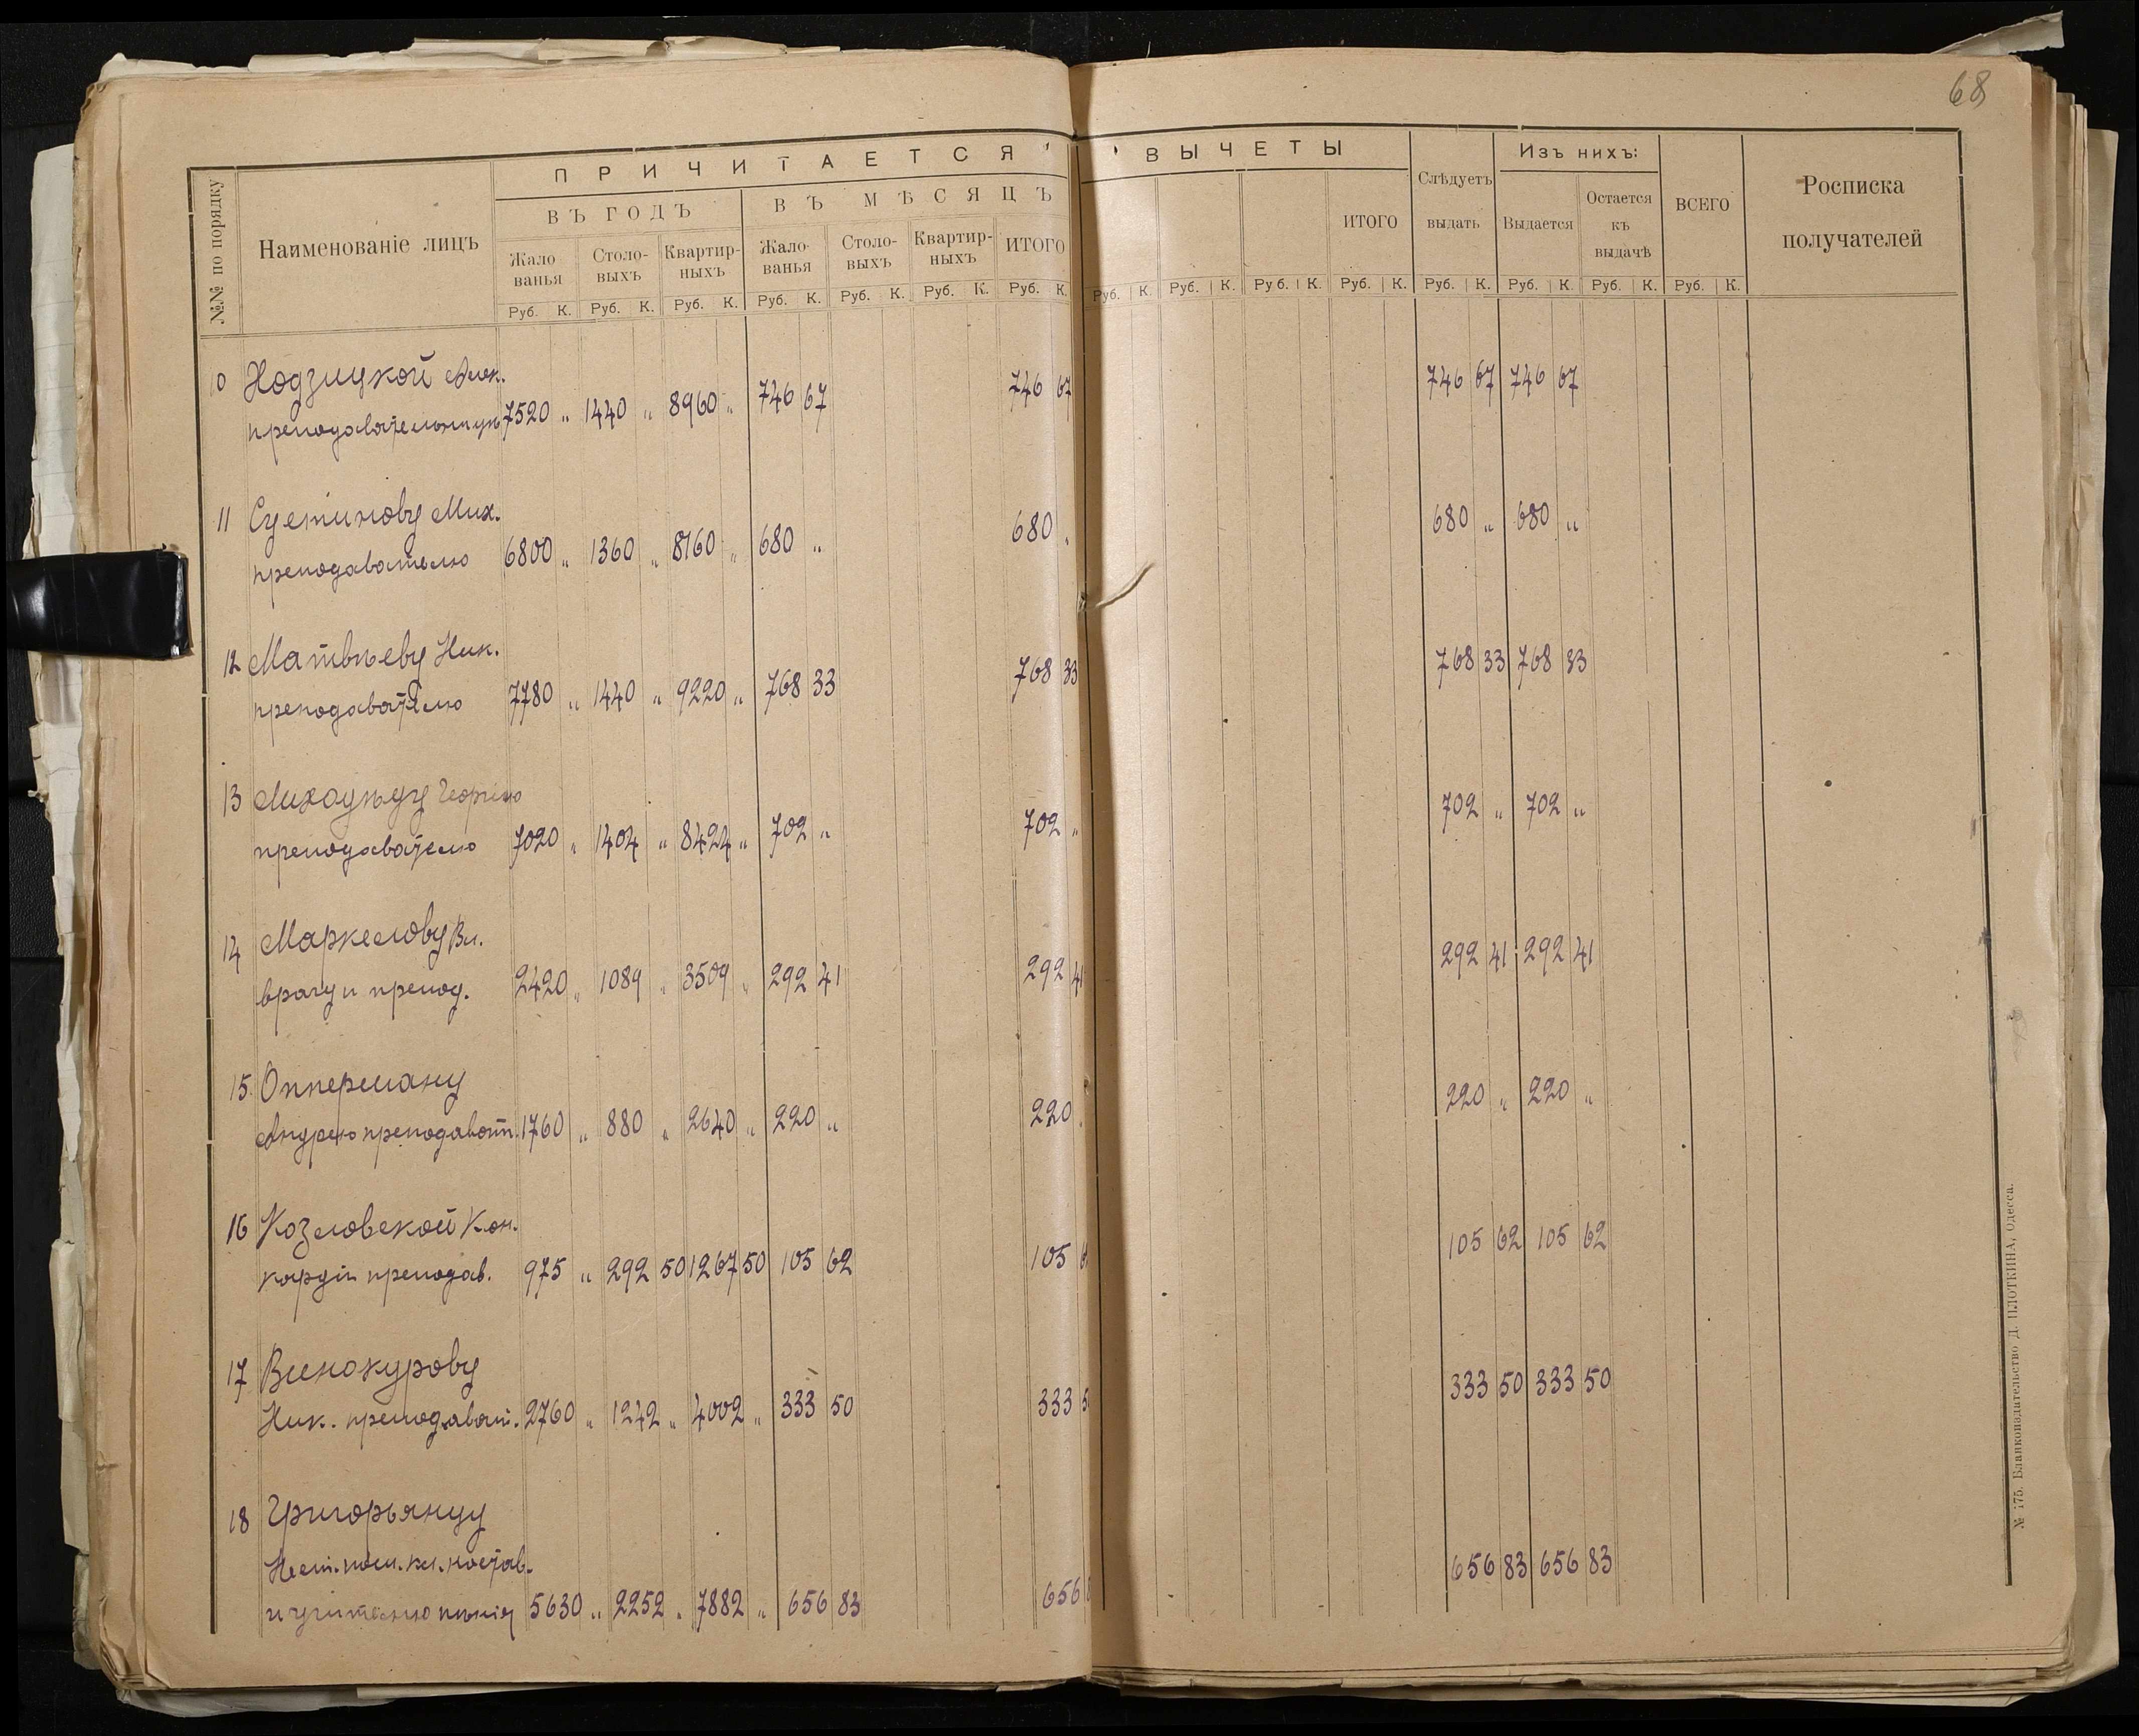 68
ПРИЧИТАЕТСЯ
ВЫЧЕТЫ
№№ по порядку
Наименованіе лицъ
ВЪ ГОДЪ
ВЪ МѢСЯЦЪ
ИТОГО
Слѣдуетъ выдать
Изъ нихъ:
Выдается
Остается къ выдачѣ
ВСЕГО
Росписка получателей
Жалованья Столовыхъ Квартирныхъ Жалованья Столовыхъ Квартирныхъ ИТОГО
Руб. К. Руб. К. Руб. К. Руб. К. Руб. К. Руб. К. Руб. К. Руб. К. Руб. К. Руб. К. Руб. К. Руб. К. Руб. К. Руб. К. Руб. К.
10 Нодзицкой Алек. 746 67 746 67
преподавательницѣ 7520 „ 1440 „ 8960 „ 746 67 746 67
11 Суетинову Мих. 680 „ 680 „
преподавателю 6800 „ 1360 „ 8160 „ 680 „ 680 „
12 Матвѣеву Ник. 768 33 768 33
преподавателю 7780 „ 1440 „ 9220 „ 768 33 768 33
13 Георгію 702 „ 702 „
преподавателю 7020 „ 1404 „ 8424 „ 702 „ 702 „
14 Маркелову Вл. 292 41 292 41
врачу и препод. 2420 „ 1089 „ 3509 „ 292 41 292 41
15 Опперману 220 „ 220 „
Андрею преподават. 1760 „ 880 „ 2640 „ 220 „ 220 „
16 Козловской Кон. 105 62 105 62
кордіи преподав. 975 „ 292 50 1267 50 105 62 105 6
17 Винокурову 333 50 333 50
Ник. преподават. 2760 „ 1242 „ 4002 „ 333 50 333 5
18 Григорьянцу
Нест. пом. кл. настав. 656 83 656 83
и учителю пѣнія 5630 „ 2252 „ 7882 „ 656 83 656
№ 175. Бланкоиздательство Д. ПЛОТКИНА, Одесса.